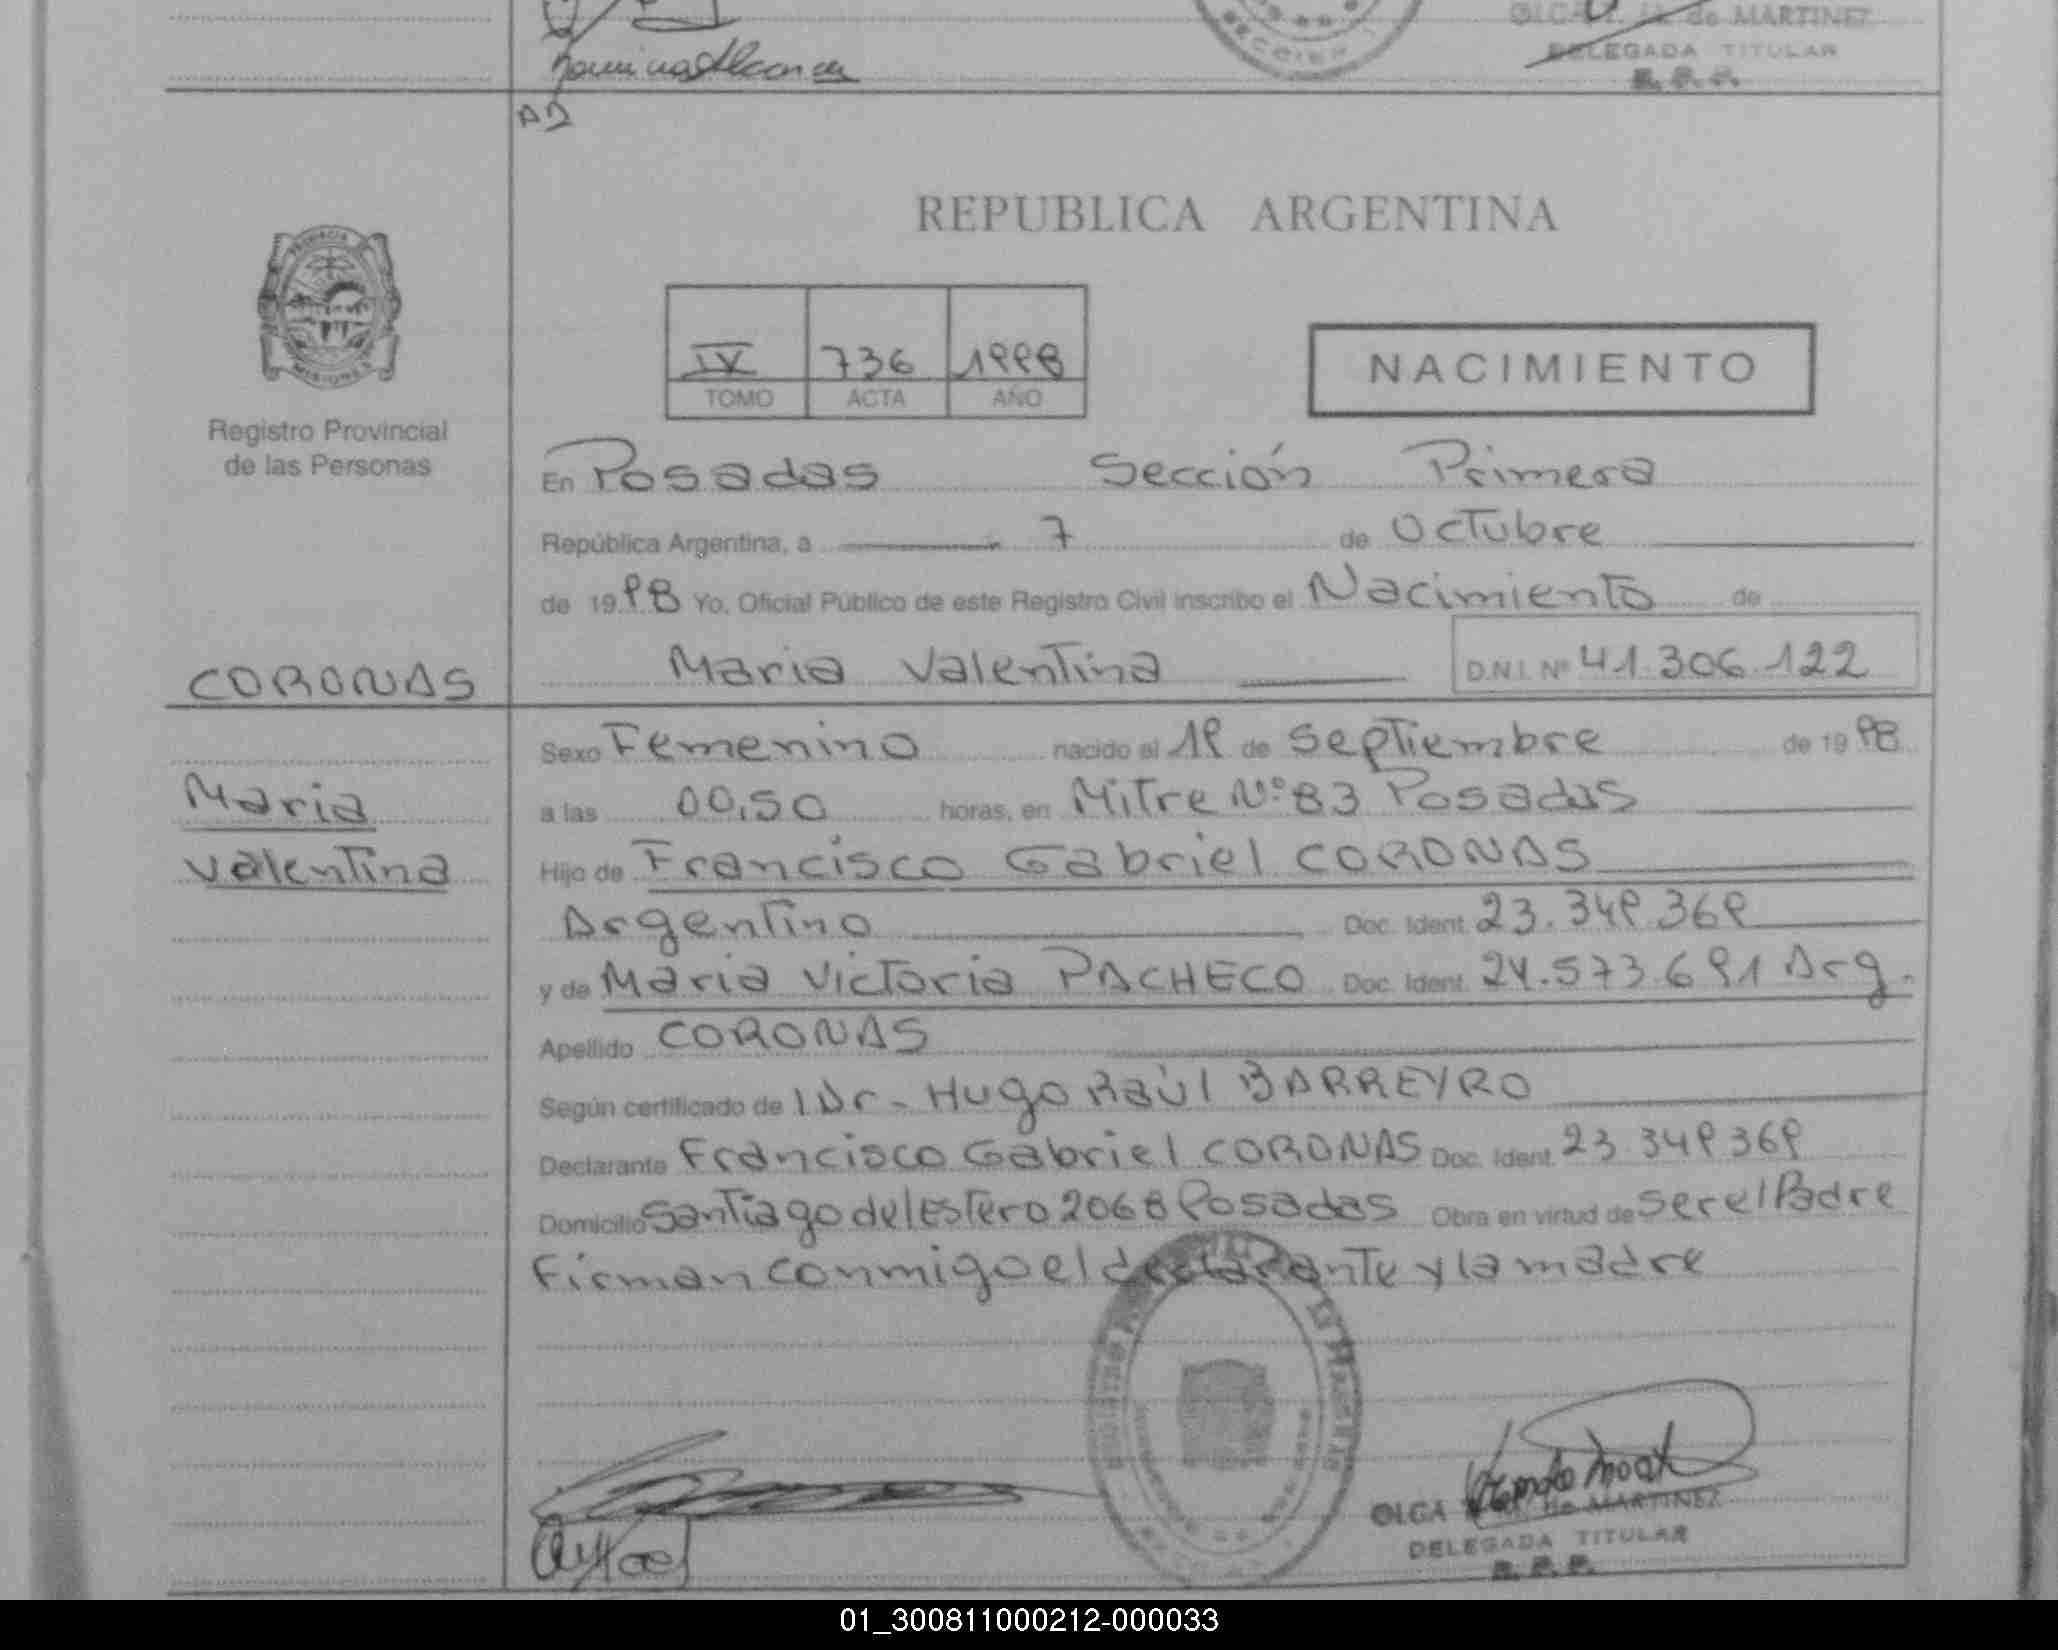 de MARTINEZ
DELEGADA TITULAR
R.P.P.
AD
REPUBLICA ARGENTINA
PROVINCIA
MISIONES
IV 736 1998
TOMO ACTA AÑO
NACIMIENTO
Registro Provincial
de las Personas
En Posadas Sección Primera
República Argentina, a 7 de Octubre
de 1998 Yo, Oficial Público de este Registro Civil inscribo el Nacimiento de
CORONAS
Maria Valentina D.N.I. Nº 41.306.122
Sexo Femenino nacido el 19 de Septiembre de 1998
Maria
a las 00,50 horas, en Mitre Nº 83 Posadas
Valentina
Hijo de Francisco Gabriel CORONAS
Argentino Doc. Ident. 23.349.369
y de Maria Victoria PACHECO Doc. Ident. 24.573.691 Arg.
Apellido CORONAS
Según certificado de l Dr. Hugo Raúl BARREYRO
Declarante Francisco Gabriel CORONAS Doc. Ident. 23.349.369
Domicilio Santiago del Estero 2068 Posadas Obra en virtud de ser el Padre
Firman conmigo el declarante y la madre
OLGA de MARTINEZ
DELEGADA TITULAR
R.P.P.
01_300811000212-000033